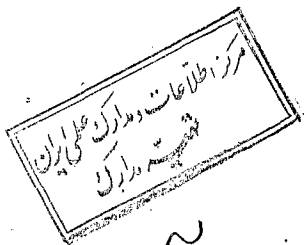 مرکز اطلاعات و مدارک علمی ایران
تهیه مدارک